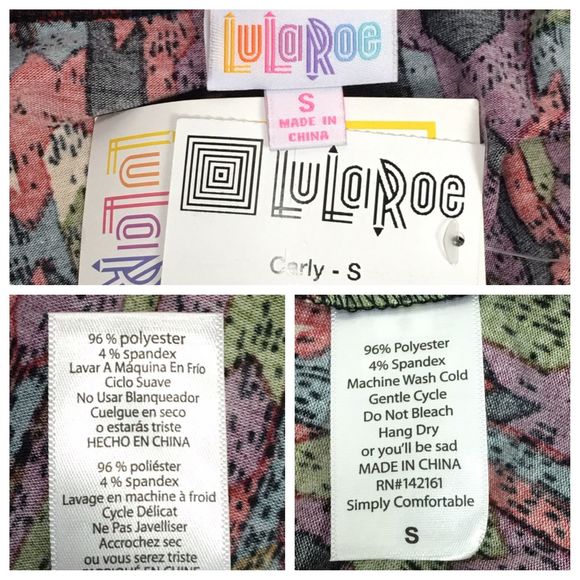 LuLaRoe
S
MADE IN
CHINA
LuLaRoe
LuLaRoe
Carly - S
96 % polyester
4 % Spandex
Lavar A Máquina En Frío
Ciclo Suave
No Usar Blanqueador
Cuelgue en seco
o estarás triste
HECHO EN CHINA
96 % poliéster
4 % Spandex
Lavage en machine à froid
Cycle Délicat
Ne Pas Javelliser
Accrochez sec
ou vous serez triste
FABRIQUÉ EN CHINE
96% Polyester
4% Spandex
Machine Wash Cold
Gentle Cycle
Do Not Bleach
Hang Dry
or you'll be sad
MADE IN CHINA
RN#142161
Simply Comfortable
S